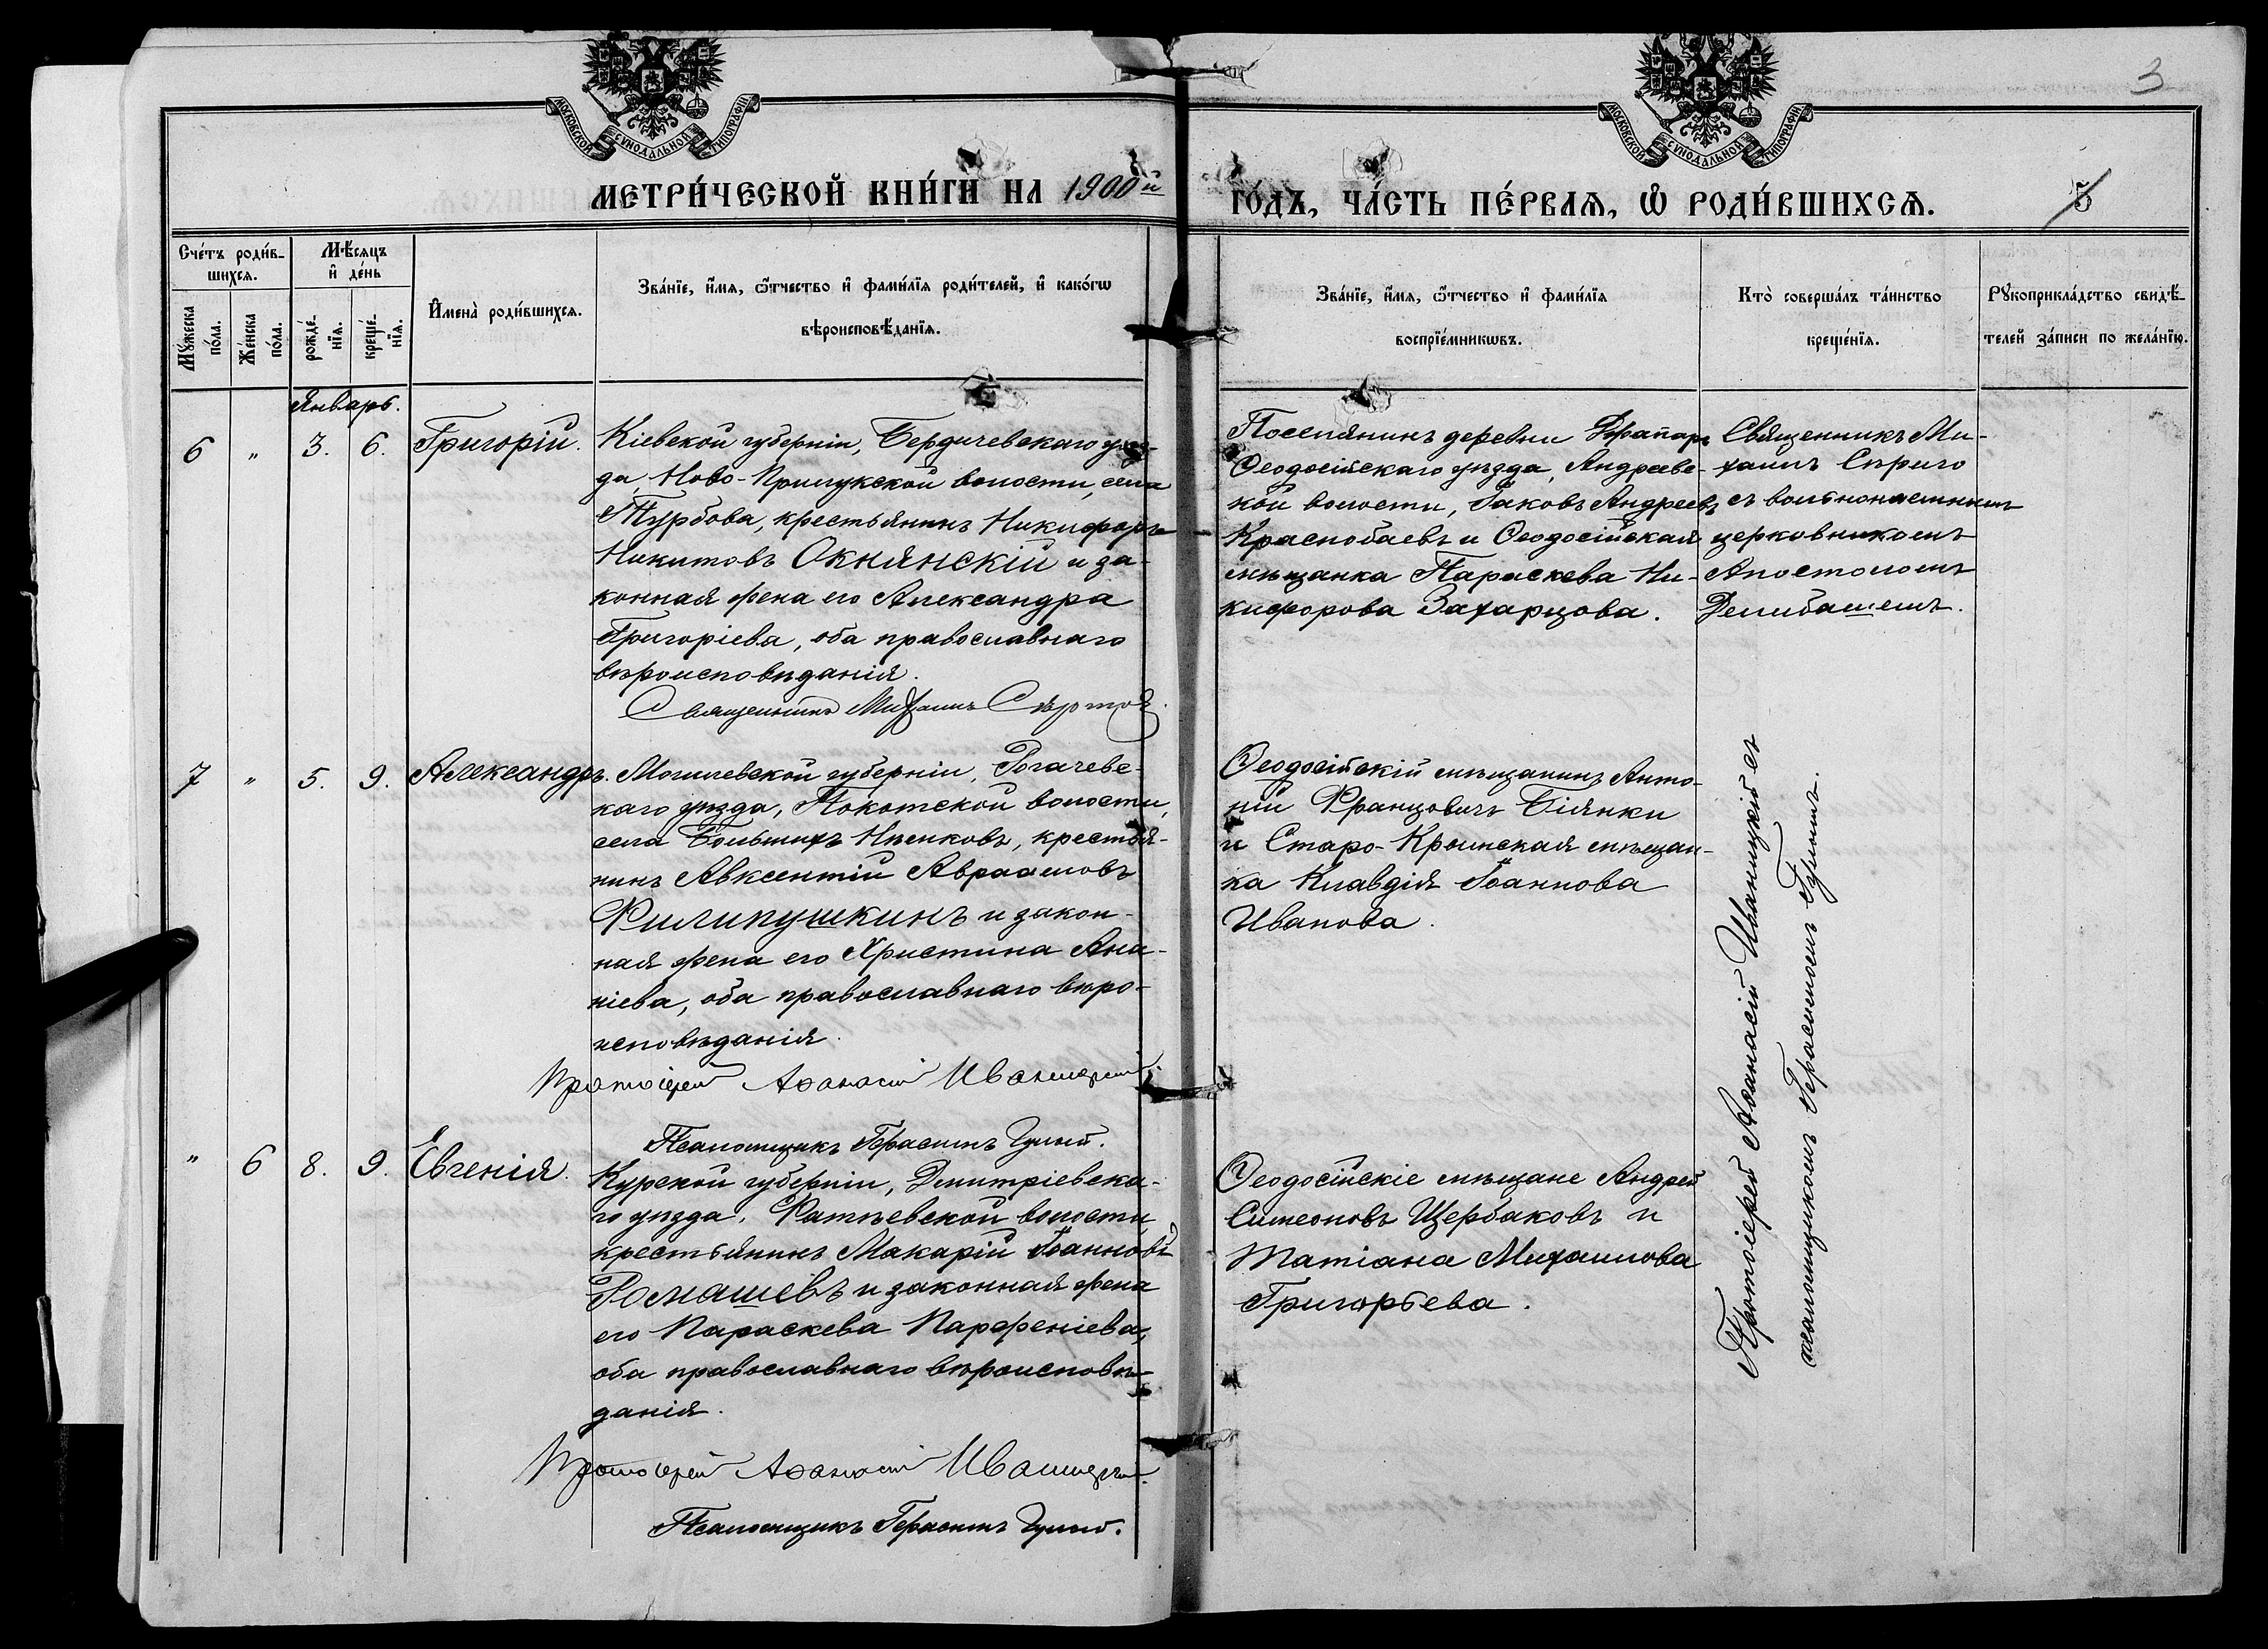 МОСКОВСКОЙ СѴНОДАЛЬНОЙ ТИПОГРАФІИ
МОСКОВСКОЙ СѴНОДАЛЬНОЙ ТИПОГРАФІИ
3
МЕТРИ́ЧЕСКОЙ КНИ́ГИ НА 1900й ГО́ДЪ, ЧА́СТЬ ПЕ́РВАЯ, Ѡ҆ РОДИ́ВШИХСѦ.
5
Сче́тъ роди́в-
шихсѧ.
Мꙋ́жеска
по́ла.
Же́нска
по́ла.
Мѣ́сѧцъ
и҆ де́нь
рожде́-
нїѧ.
креще́-
нїѧ.
И҆мена̀ роди́вшихсѧ.
Зва́нїе, и҆́мѧ, ѻ҆́тчество и҆ фами́лїѧ роди́телей, и҆ како́гѡ
вѣроисповѣ́данїѧ.
Зва́нїе, и҆́мѧ, ѻ҆́тчество и҆ фами́лїѧ
воспрїе́мникѡвъ.
Кто̀ соверша́лъ та́инство
креще́нїѧ.
Рꙋкоприкла́дство свидѣ́-
телей за́писи по жела́нїю.
Январь.
6 " 3. 6. Григорій.
Кіевской губерніи, Бердичевскаго уѣз-
да, Ново-Прилукской волости, села
Турбова, крестьянинъ Никифоръ
Никитовъ Окнянскій и за-
конная жена его Александра
Григоріева, оба православнаго
вѣроисповѣданія.
Священникъ Михаилъ
Поселянинъ деревни
Ѳеодосійскаго уѣзда, Андреевс-
кой волости, Іаковъ Андреевъ
Краснобаевъ и Ѳеодосійская
мѣщанка Параскева Ни-
кифорова Захарцова.
Священникъ Ми-
хаилъ
съ вольнонаемнымъ
церковникомъ
Апостоломъ
Делибашемъ.
7 " 5. 9. Александръ.
Могилевской губерніи, Рогачевс-
каго уѣзда, Покотской волости,
села Большихъ Нѣмковъ, крестья-
нинъ Авксентій Авраамовъ
Филипушкинъ и закон-
ная жена его Христина Ана-
ніева, оба православнаго вѣро-
исповѣданія.
Протоіерей Аѳанасій Иваницкій.
Псаломщикъ Герасимъ
Ѳеодосійскій мѣщанинъ Анто-
ній Францовичъ Біянки
и Старо-Крымская мѣщан-
ка Клавдія Іоаннова
Иванова.
Протоіерей Аѳанасій Иваницкій съ
псаломщикомъ Герасимомъ
" 6 8. 9. Евгенія.
Курской губерніи, Дмитріевска-
го уѣзда, Фатѣевской волости
крестьянинъ Макарій Іоанновъ
Ромашевъ и законная жена
его Параскева Парфеніева,
оба православнаго вѣроисповѣ-
данія.
Протоіерей Аѳанасій Иваницкій.
Псаломщикъ Герасимъ
Ѳеодосійскіе мѣщане Андрей
Симеоновъ Щербаковъ и
Татіана Михаилова
Григорьева.